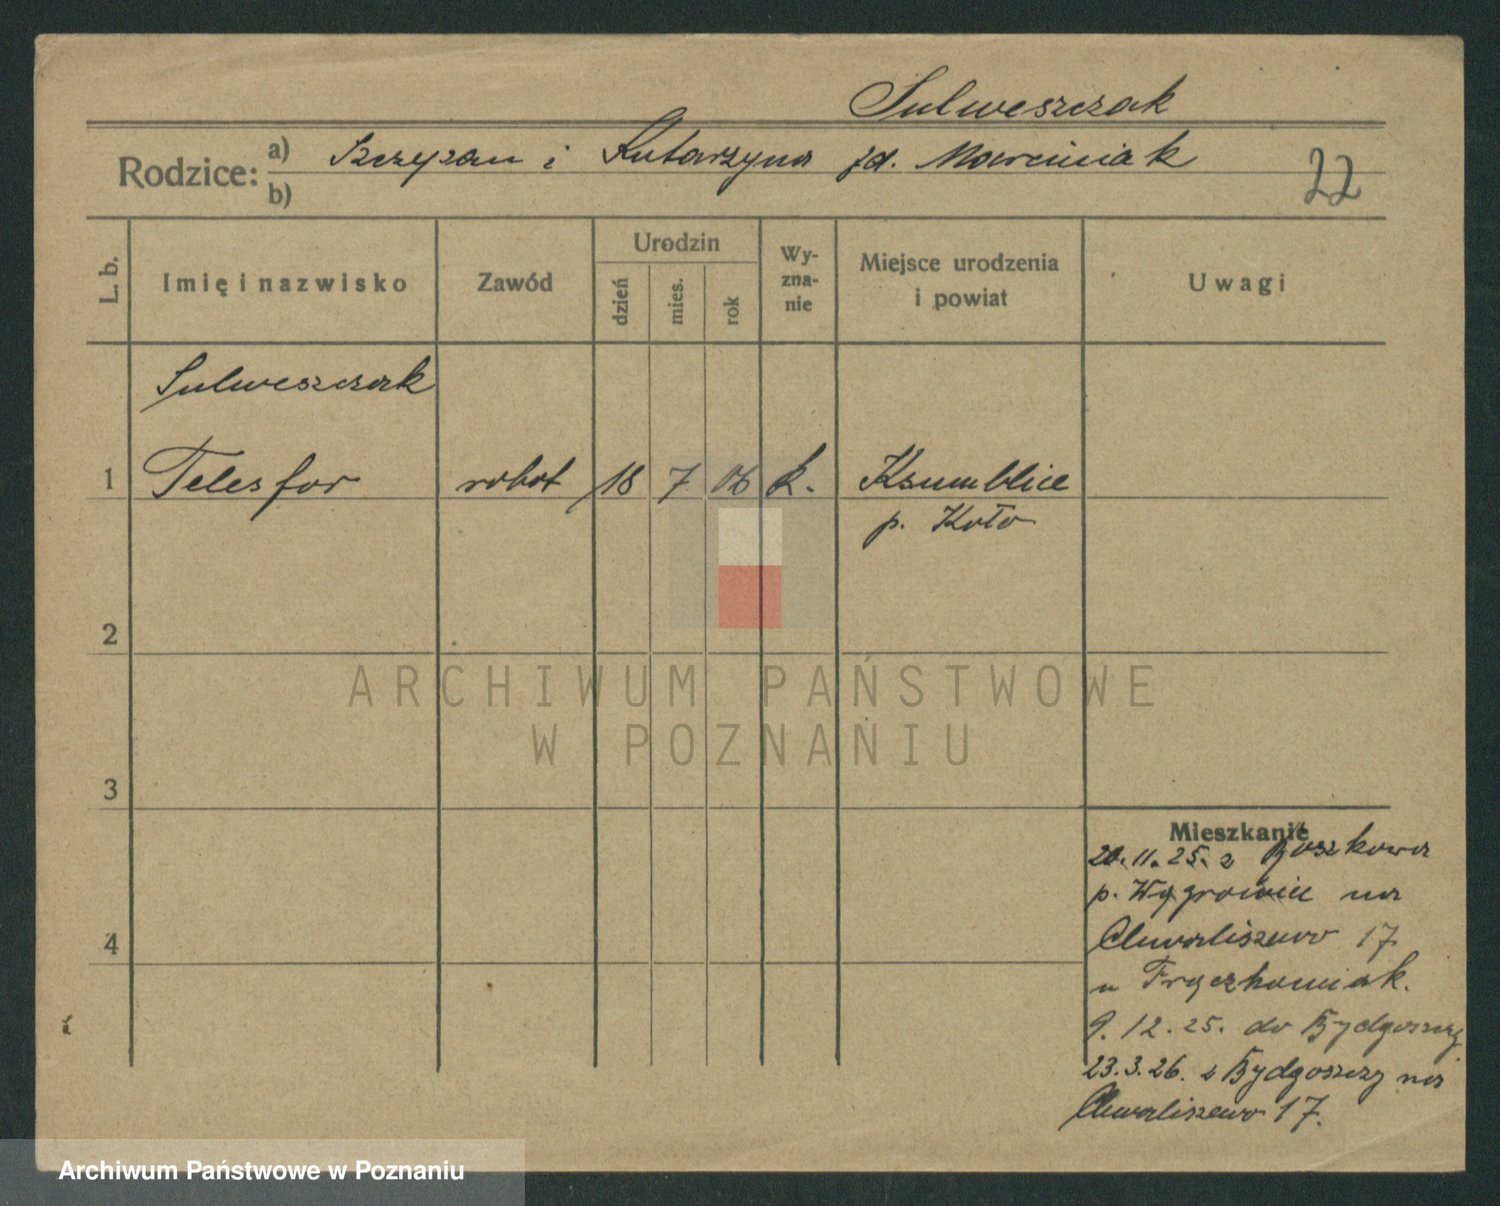 Sulweszczak
Rodzice: a) Szczepan i Katarzyna zd. Marciniak
b)
22
L. b.
Imię i nazwisko
Zawód
Urodzin
dzień
mies.
rok
Wy-
zna-
nie
Miejsce urodzenia
i powiat
Uwagi
Sulweszczak
1 Telesfor robot 18 7 06 k.
p. Koło
2
3
4
Mieszkanie
20.11.25. z
p. Wągrowiec na
Chwaliszewo 17
u Frąckowiak.
9.12.25. do Bydgoszczy
23.3.26. z Bydgoszczy na
Chwaliszewo 17.
ARCHIWUM PAŃSTWOWE
W POZNANIU
Archiwum Państwowe w Poznaniu